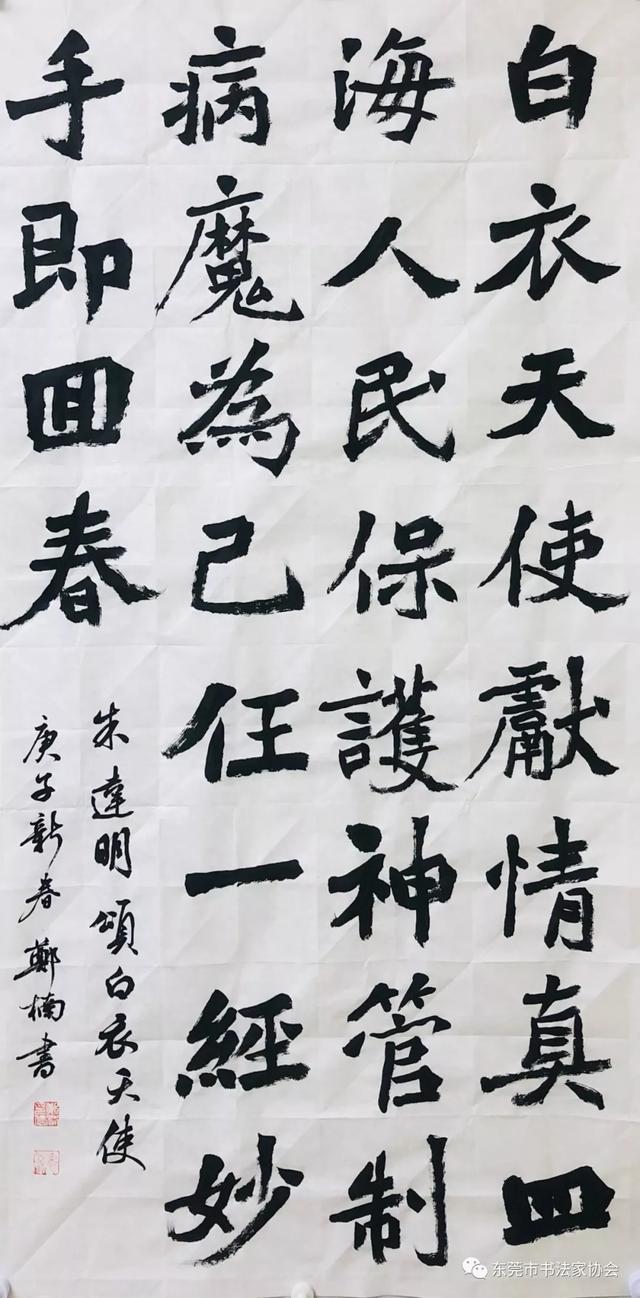 白衣天使獻情真四
海人民保護神管制
病魔為己任一經妙
手即回春
朱達明頌白衣天使
庚子新春鄭楠書
东莞市书法家协会